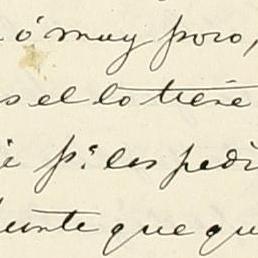 ó muy poco,
s el lo tiene
e p.ˢ les pedi
iente que qu